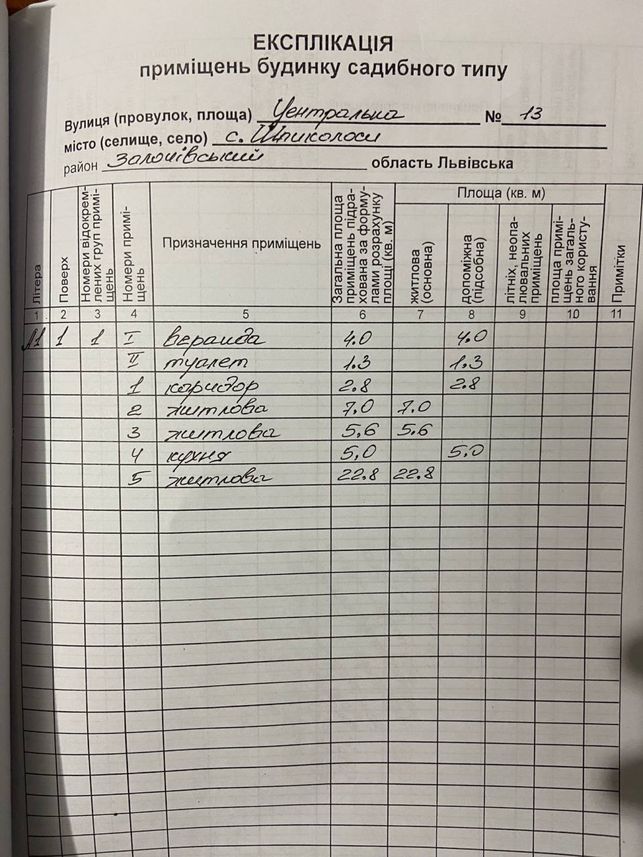 ЕКСПЛІКАЦІЯ
приміщень будинку садибного типу
Вулиця (провулок, площа) Центральна № 13
місто (селище, село) с. Шпиколоси
район Золочівський область Львівська
Літера
Поверх
Номери відокрем-
лених груп примі-
щень
Номери примі-
щень
Призначення приміщень
Загальна площа
приміщень підра-
хована за форму-
лами розрахунку
площі (кв. м)
Площа (кв. м)
житлова
(основна)
допоміжна
(підсобна)
літніх, неопа-
лювальних
приміщень
площа примі-
щень загаль-
ного користу-
вання
Примітки
1 2 3 4 5 6 7 8 9 10 11
А1 1 1 I веранда 4.0 4.0
II туалет 1.3 1.3
1 коридор 2.8 2.8
2 житлова 7.0 7.0
3 житлова 5,6 5.6
4 кухня 5,0 5.0
5 житлова 22.8 22.8